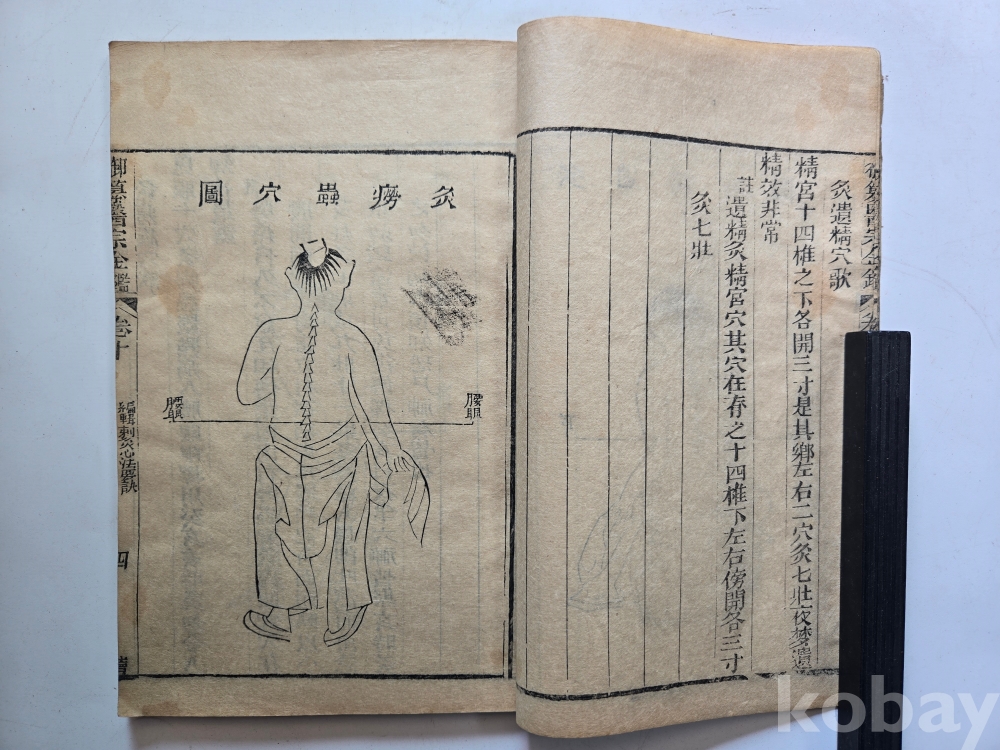 灸遺精穴歌
精宮十四椎之下各開三寸是其鄉左右二穴灸七壯夜夢遺
精效非常
註遺精灸精宮穴其穴在脊之十四椎下左右傍開各三寸
灸七壯
灸癆蟲穴圖
腰眼
腰眼
御纂醫宗金鑑
卷十
編輯刺灸心法要訣
四
御纂醫宗金鑑
kobay